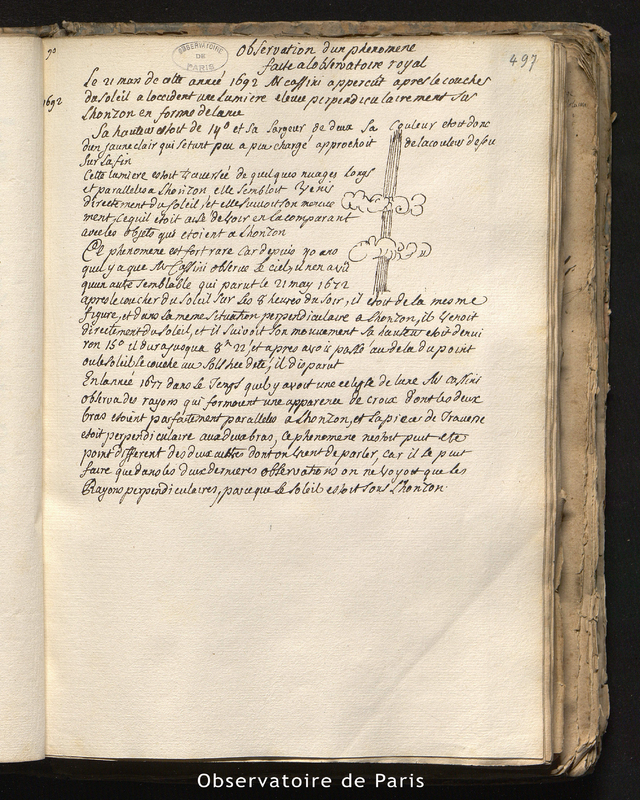 90
OBSERVATOIRE
DE
PARIS
Observation dun phenomene
faite a lobservatoire royal
497
Le 21 mars de cette année 1692 Mr Cassini apperceut apres le couches
1692
du soleil a loccident une Lumiere eleuee perpendiculairement sur
Lhorizon en forme de lance
Sa hauteur estoit de 14° et sa Largeur de deux Sa Couleur etoit donc
dun jaune clair qui setant peu a peu chargé approchoit de la couleur de feu
sur la fin
Cette lumiere estoit traversée de quelques nuages Longs
et paralleles a Lhorizon elle sembloit Venir
directement du soleil, et elle suivoit son mouve
ment, ce quil etoit aisé de Voir en la comparant
avec les objets qui etoient a Lhorizon
Ce phenomene est fort rare Car depuis 40 ans
quil y a que Mr Cassini observe le Ciel, il n'en a vu
quun autre semblable qui parut le 21 may 1672
apres le coucher du Soleil sur les 8 heures du soir, il etoit de la mesme
figure, et dans la meme situation perpendiculaire a Lhorizon, il Venoit
directement du soleil, et il suivoit son mouvement Sa hauteur etoit denvi
ron 15° il dura jusqua 8h 22', et apres avoir passé au dela du point
ou le soleil se couche au solstice deté, il disparut
En lannée 1677 dans le Temps quil y avoit une eclipse de lune Mr Cassini
observa des rayons qui formoient une apparence de croix dont les deux
bras etoient parfaitement paralleles a Lhorizon, et la piece de Traverse
etoit perpendiculaire aux deux bras, ce phenomene nestoit peut etre
point different des deux autres dont on Vient de parler, car il se peut
faire que dans les deux dernieres observations on ne Voyoit que les
Rayons perpendiculaires, parce que le soleil estoit sous Lhorizon.
Observatoire de Paris